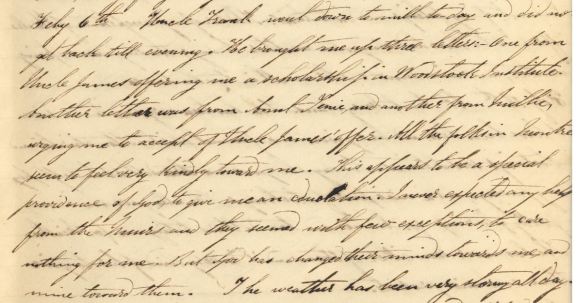 Feby 6th Uncle Frank went down to mill to-day and did not
get back till evening. He brought me up three letters:- One from
Uncle James offering me a scholarship in Woodstock Institute.
Another letter was from Aunt Genie, and another from Millie,
urging me to accept of Uncle James' offer. All the folks in
seem to feel very kindly toward me. This appears to be a special
providence of God, to give me an education. I never expected any help
from the and they seemed with few exceptions, to care
nothing for me. But God has changed their minds towards me, and
mine toward them. The weather has been very stormy all day.